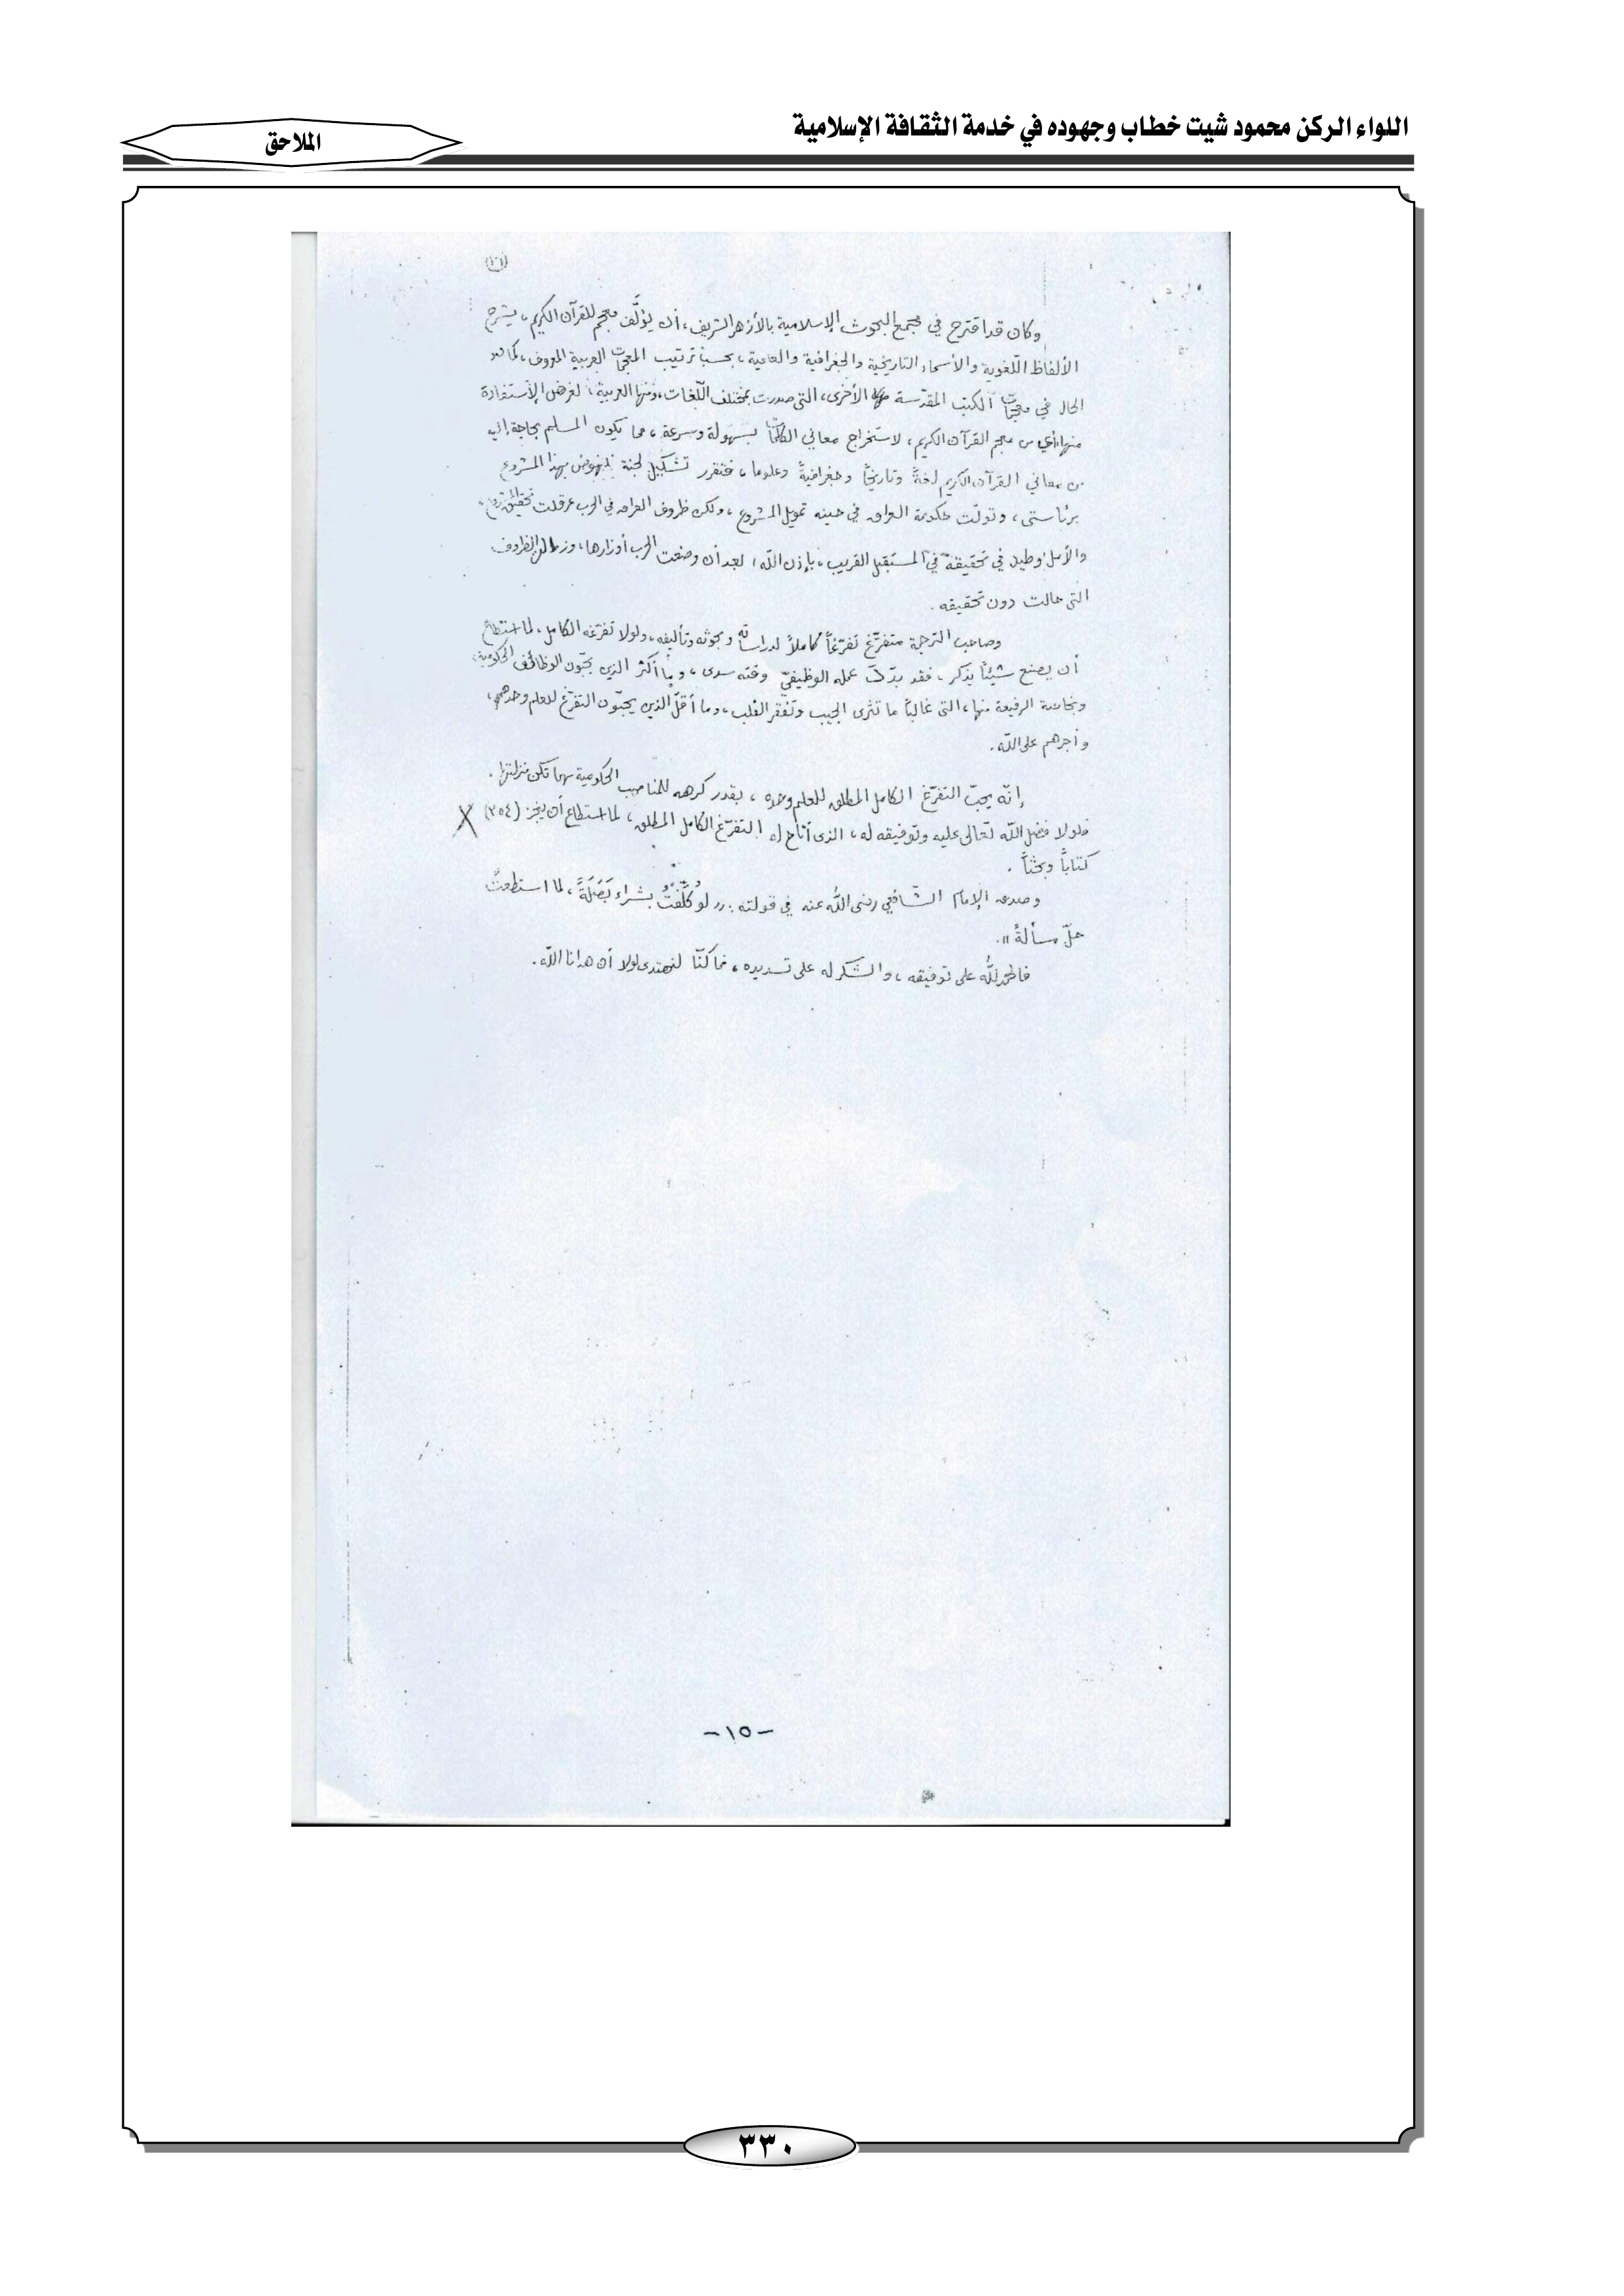 اللواء الركن محمود شيت خطاب وجهوده في خدمة الثقافة الإسلامية
الملاحق
وكان قد اقترح في مجمع البحوث الإسلامية بالأزهر الشريف، أن يؤلَّف معجم للقرآن الكريم، يشرح
الألفاظ اللّغوية والأسماء التاريخية والجغرافية والعلمية، بحسب ترتيب المعجمات العربية المعروف، كما هو
الحال في معجمات الكتب المقدّسة الأخرى، التي صدرت بمختلف اللّغات، ومنها العربية، لغرض الإستفادة
منها، أي من معجم القرآن الكريم، لاستخراج معاني الكلمات بسهولة وسرعة، مما يكون المسلم بحاجة إليه
من معاني القرآن الكريم لغةً وتاريخاً وجغرافيةً وعلوما، فتقرر تشكيل لجنة للنهوض بهذا المشروع
برئاستي، وتولّت حكومة العراق في حينه تمويل المشروع، ولكن ظروف العراق في الحرب عرقلت تحقيق المشروع،
والأمل وطيد في تحقيقه في المستقبل القريب، بإذن اللّه، بعد أن وضعت الحرب أوزارها، وزالت الظروف
التي حالت دون تحقيقه.
وصاحب الترجمة متفرّغ تفرّغاً كاملاً لدراساته وبحوثه وتأليفه، ولولا تفرّغه الكامل، لما استطاع
أن يصنع شيئاً يذكر، فقد بدّد عمله الوظيفيّ وقته سدى، وما أكثر الذين يحبّون الوظائف الحكومية،
وبخاصة الرفيعة منها، التي غالباً ما تثرى الجيب وتفقر القلب، وما أقلّ الذين يحبّون التفرّغ للعلم وحدهم،
وأجرهم على اللّه.
إنّه يحبّ التفرّغ الكامل المطلق للعلم وحده، بقدر كرهه للمناصب الحكومية مهما تكن منزلتها.
فلولا فضل اللّه تعالى عليه وتوفيقه له، الذي أتاح له التفرّغ الكامل المطلق، لما استطاع أن ينجز (٣٥٤)
كتاباً وبحثاً.
وصدق الإمام الشّافعي رضى اللّه عنه في قولته: ((لو كُلِّفْتُ بشراء بَصَلَةً، لما استطعتُ
حلّ مسألةً)).
فالحمد للّه على توفيقه، والشكر له على تسديده، فما كنّا لنهتدى لولا أن هدانا اللّه.
-١٥-
٣٣٠